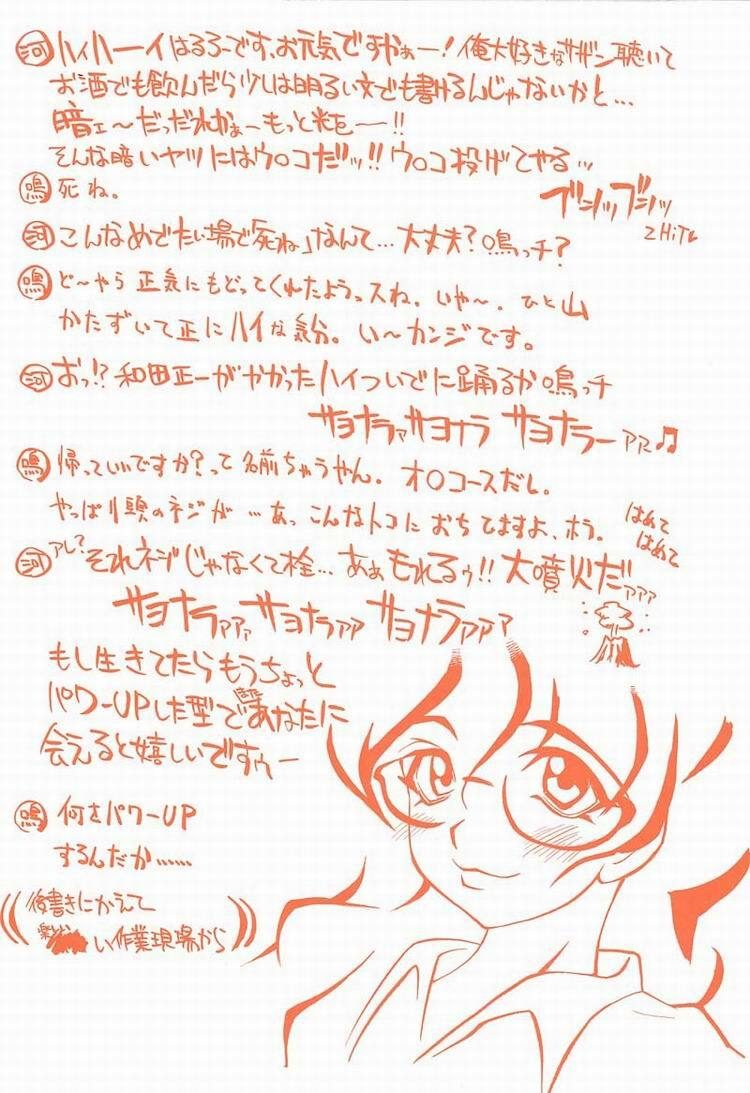 河 ハイハーイはろろーです、お元気ですかぁー!俺大好きなサザン聴いて
お酒でも飲んだら少しは明るい文でも書けるんじゃないかと…
暗ェ〜だっだれかぁーもっと光をー!!
そんな暗いヤツにはウ○コだッ!!ウ○コ投げてやるッ
鳴 死ね。
ブシッブシッ
2HIT
河 こんなめでたい場で「死ね」なんて…大丈夫?鳴っチ?
鳴 ど〜やら正気にもどってくれたようっスね。いや〜。ひと山
かたずいて正にハイな気分。い〜カンジです。
河 おっ!?和田正一がやかったハイついでに踊るか鳴っチ
サヨナラァサヨナラ サヨナラーァァ♫
鳴 帰っていいですか?って名前ちゃうやん。オ○コースだし。
やっぱり頭のネジが…あっこんなトコにおちてますよ、ホラ。
はめて
はめて
河 アレ?それネジじゃなくて栓…あぁもれるぅ!!大噴火だァァァ
サヨナラァァァサヨナラァァァサヨナラァァァ
もし生きてたらもうちょっと
パワーUPした型であなたに
会えると嬉しいですぅー
鳴 何をパワーUP
するんだか……
後書きにかえて
い作業現場から